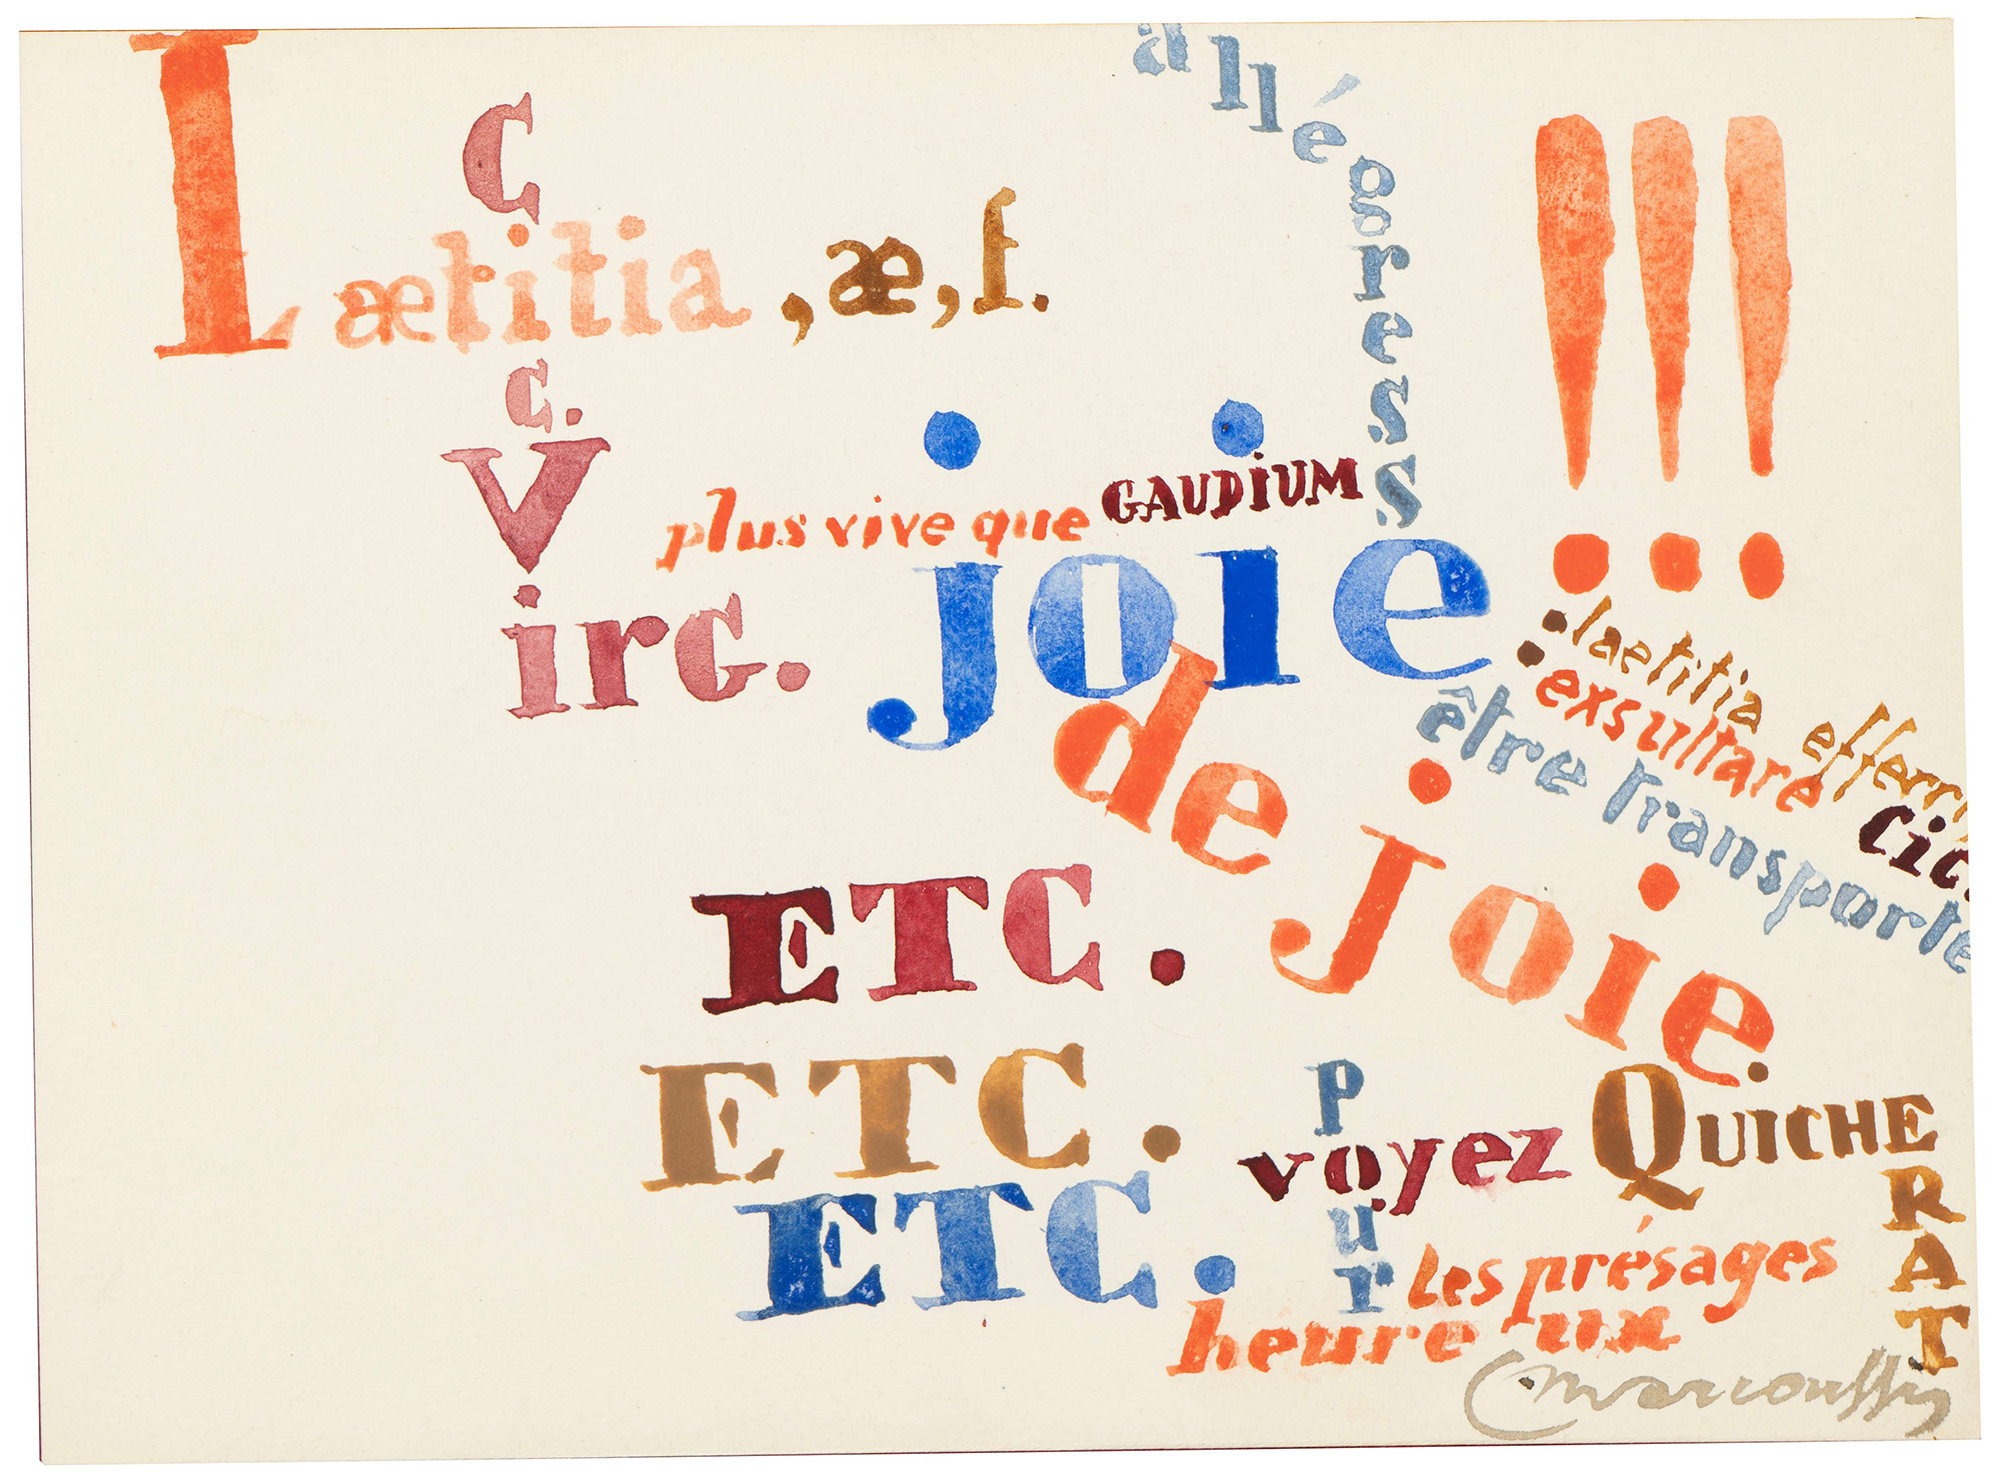 Lætitia, æ, f.
C
c.
Virg.
allégresse
!!!
plus vive que GAUDIUM
joie
de joie
: lætitia efferri
exsultare Cic.
être transporté
ETC.
ETC.
ETC.
pour
voyez QUICHERAT
les présages
heureux
Marcoussis